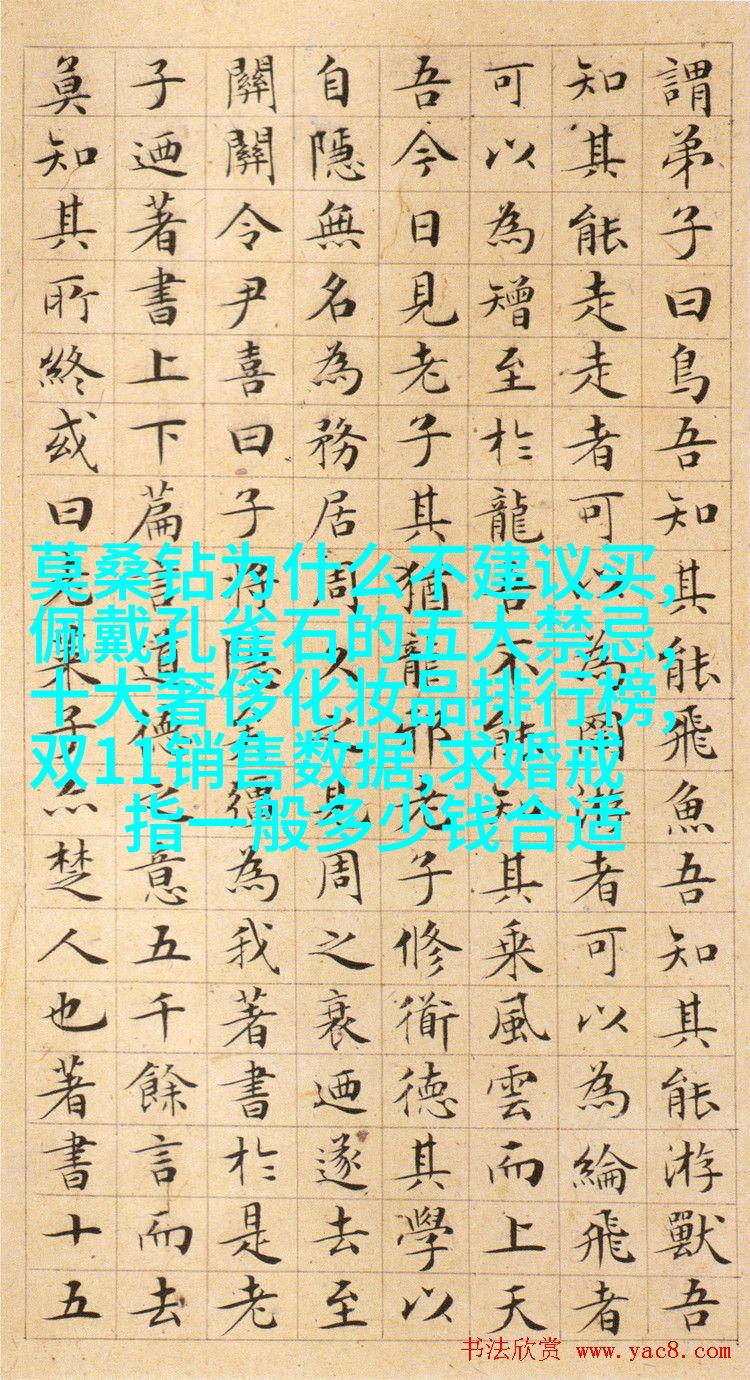 謂弟子曰鳥吾知其能飛魚吾知其能游獸吾
知其能走走者可以為罔游者可以為綸飛者
可以為矰至於龍吾不能知其乘風雲而上天
吾今日見老子其猶龍邪老子修衜德其學以
自隱無名為務居周久之見周之衰迺遂去至
關關令尹喜曰子將隱矣彊為我著書於是老
子迺著書上下篇言道德之意五千餘言而去
莫知其所終或曰老萊子亦楚人也著書十五
莫桑钻为什么不建议买,
佩戴孔雀石的五大禁忌,
十大奢侈化妆品排行榜,
双11销售数据,求婚戒
指一般多少钱合适
书法欣赏 www.yac8.com